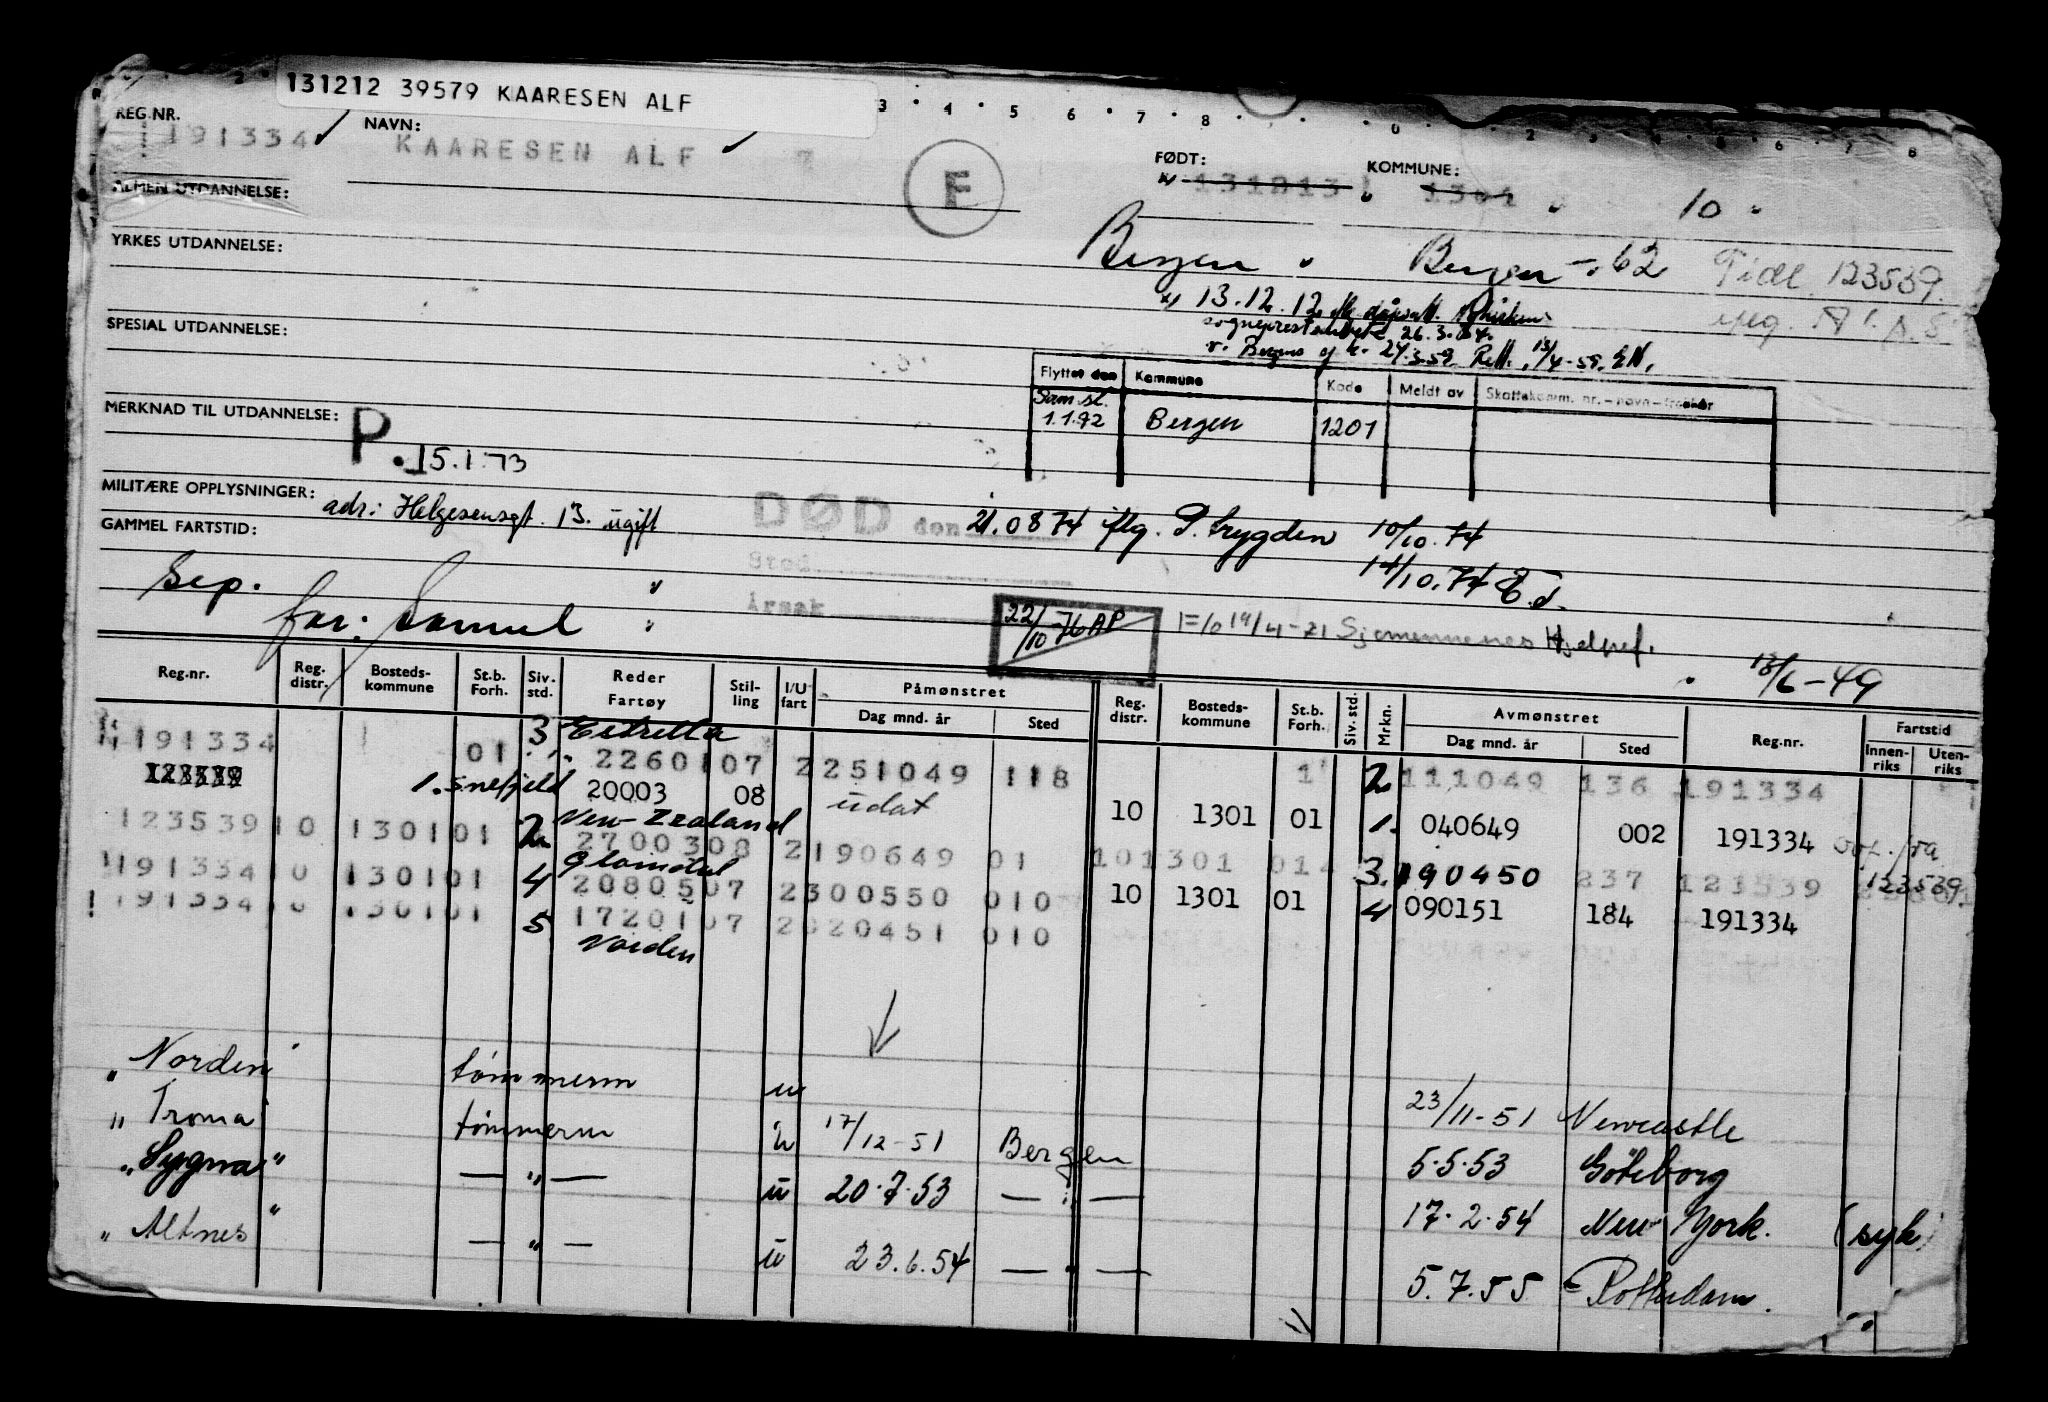 131212 39579 KAARESEN ALF
REG.NR. NAVN:
191334 KAARESEN ALF
F
FØDT: KOMMUNE:
131213 1301 10
ALMEN UTDANNELSE:
YRKES UTDANNELSE:
Bergen Bergen -62 Tidl. 123539
x) 13.12.12
sogneprestembete 26.3.
24.3.59 Rett. 13/4-59.
SPESIAL UTDANNELSE:
Flyttet den Kommune Kode Meldt av Skattekomm. nr.-navn-
Sam.sl.
1.1.72 Bergen 1201
MERKNAD TIL UTDANNELSE:
P. 15.1.73
MILITÆRE OPPLYSNINGER: adr: Helgesensgt. 13. ugift
DØD den 21.0874 iflg. P.trygden 10/10.74
GAMMEL FARTSTID:
Sted
14/10.74
Årsak
Sep. far: Samuel
22/10-76 AP
14/4-71 Sjømennenes Hjelpef.
13/6-49
Reg.nr. Reg. distr. Bosteds-kommune St.b. Forh. Siv. std. Reder Fartøy Stil-ling I/U fart Påmønstret Dag mnd. år Sted Reg. distr. Bosteds-kommune St.b. Forh. Siv. std. Mrkn. Avmønstret Dag mnd. år Sted Reg.nr. Fartstid Innen-riks Uten-riks
191334 01 3 2260107 2251049 118 1 2 111049 136 191334
123539 1. Snefjeld 20003 08 udat 10 1301 01 1. 040649 002 191334
New Zealand
12353910 130101 2 2700308 2190649 01 101301 01 3. 190450 237 123539 123539
19133410 130101 4 2080507 2300550 010 10 1301 01 4 090151 184 191334
19133410 130101 5 1720107 2020451 010
Norden
"Norden" tømmerm u 23/11-51 Newcastle
"Troma" tømmerm u 17/12-51 Bergen 5.5.53 Göteborg
"Sygna" — " — u 20.7.53 — " — 17.2.54 New York. (syk)
"Altnes" — " — u 23.6.54 — " — 5.7.55 Rotterdam.